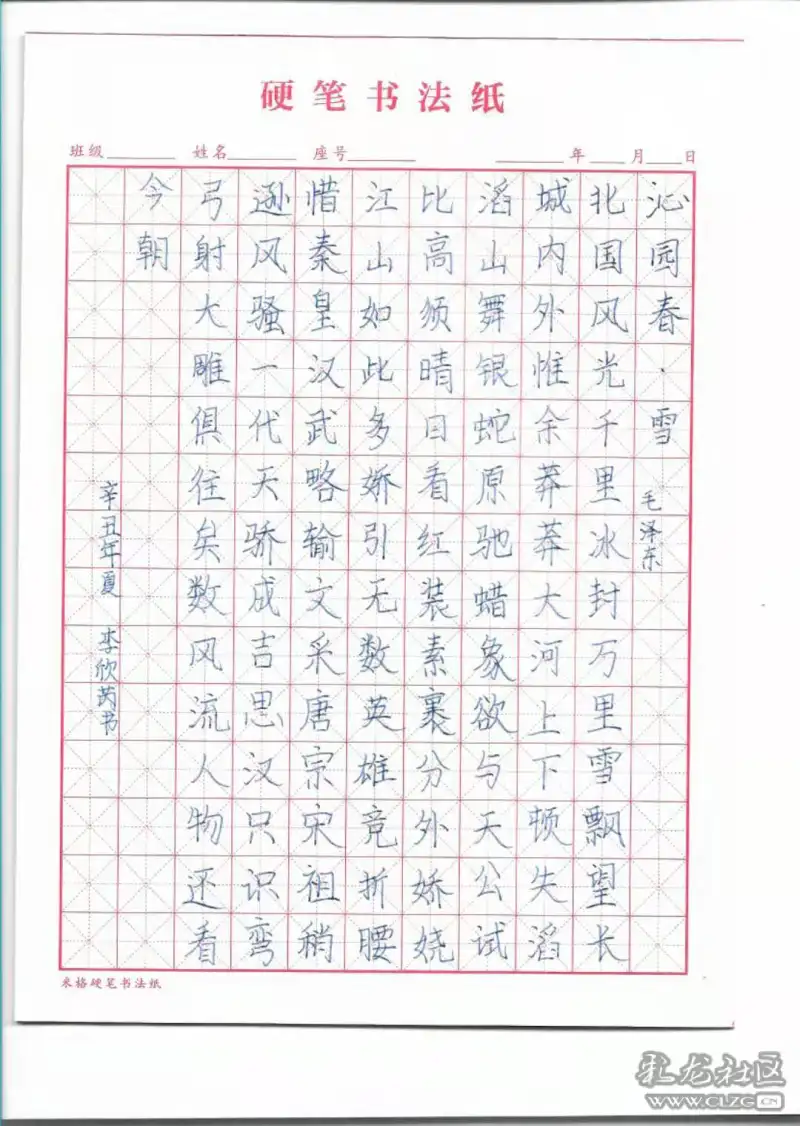 硬笔书法纸
班级 姓名 座号 年 月 日
沁园春·雪
毛泽东
北国风光千里冰封万里雪飘望长
城内外惟余莽莽大河上下顿失滔
滔山舞银蛇原驰蜡象欲与天公试
比高须晴日看红装素裹分外娇娆
江山如此多娇引无数英雄竞折腰
惜秦皇汉武略输文采唐宗宋祖稍
逊风骚一代天骄成吉思汉只识弯
弓射大雕俱往矣数风流人物还看
今朝
辛丑年夏 李欣芮书
米格硬笔书法纸
彩龙社区
WWW.CLZG.CN